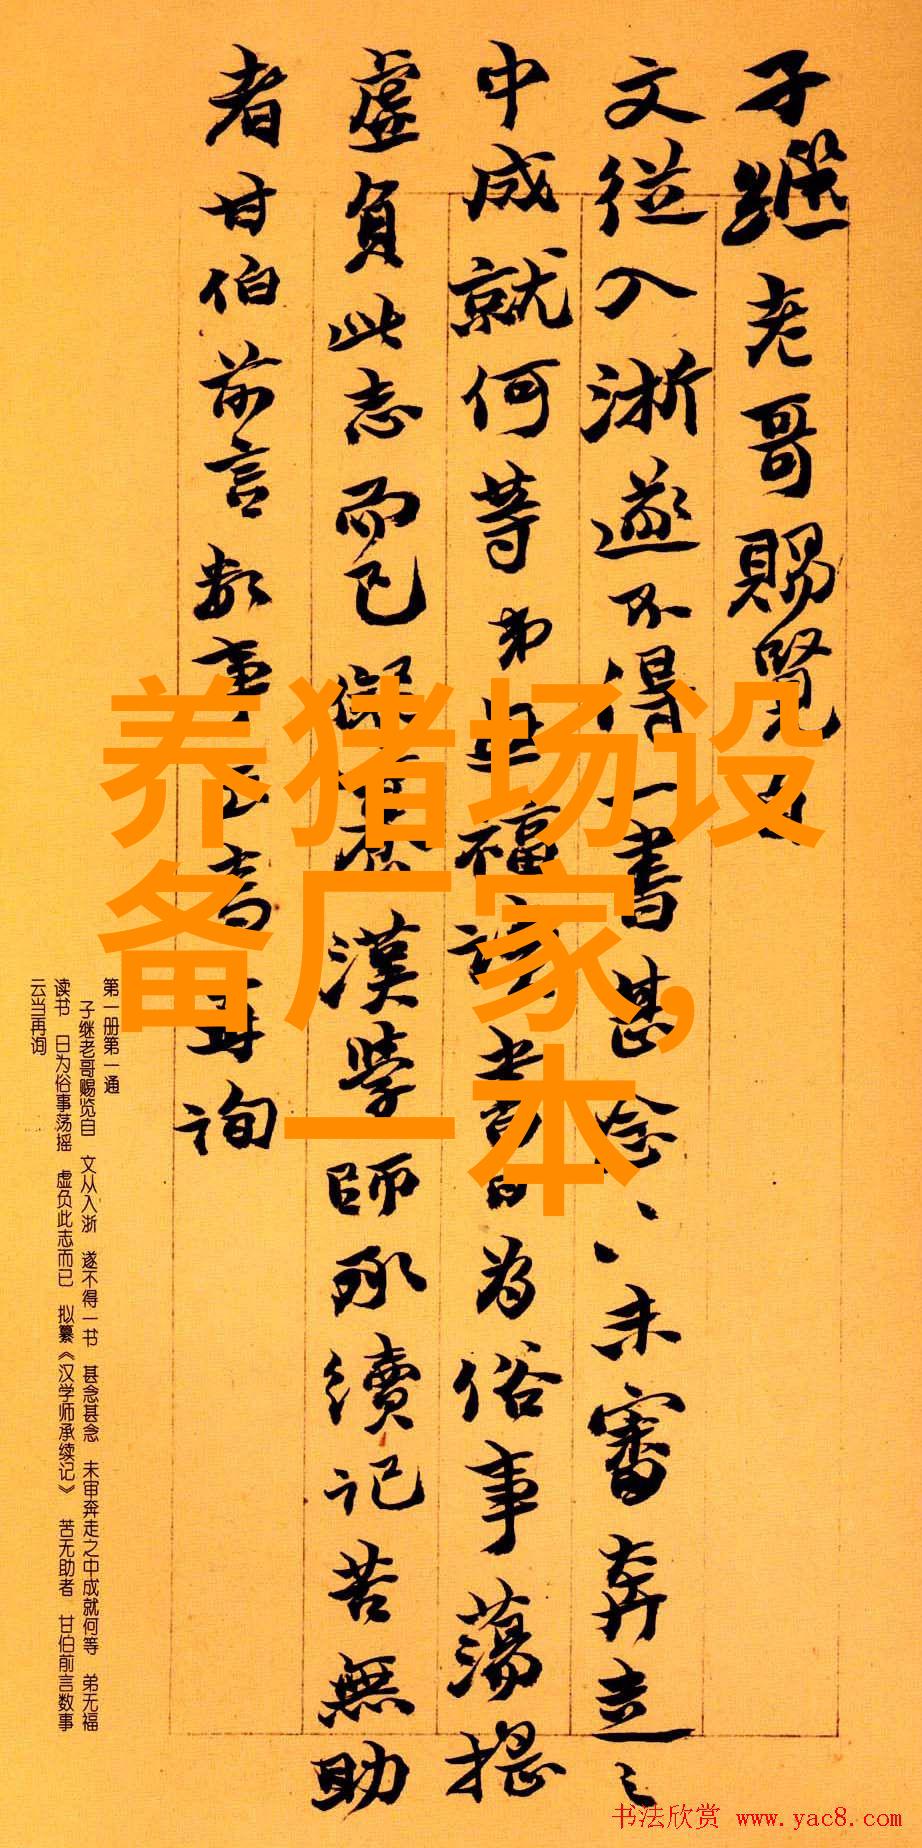 子繼老哥賜覽自
文從入浙遂不得一書甚念〻未審奔走之
中成就何等弟無福讀書日為俗事蕩摇
虚負此志而已擬纂漢學師承續記苦無助
者甘伯前言数事云當再詢
养猪场设
备厂家,
一本
第一册第一通
子继老哥赐览自 文从入浙 遂不得一书 甚念甚念 未审奔走之中成就何等 弟无福
读书 日为俗事荡摇 虚负此志而已 拟纂《汉学师承续记》 苦无助者 甘伯前言数事
云当再询
书法欣赏 www.yac8.com